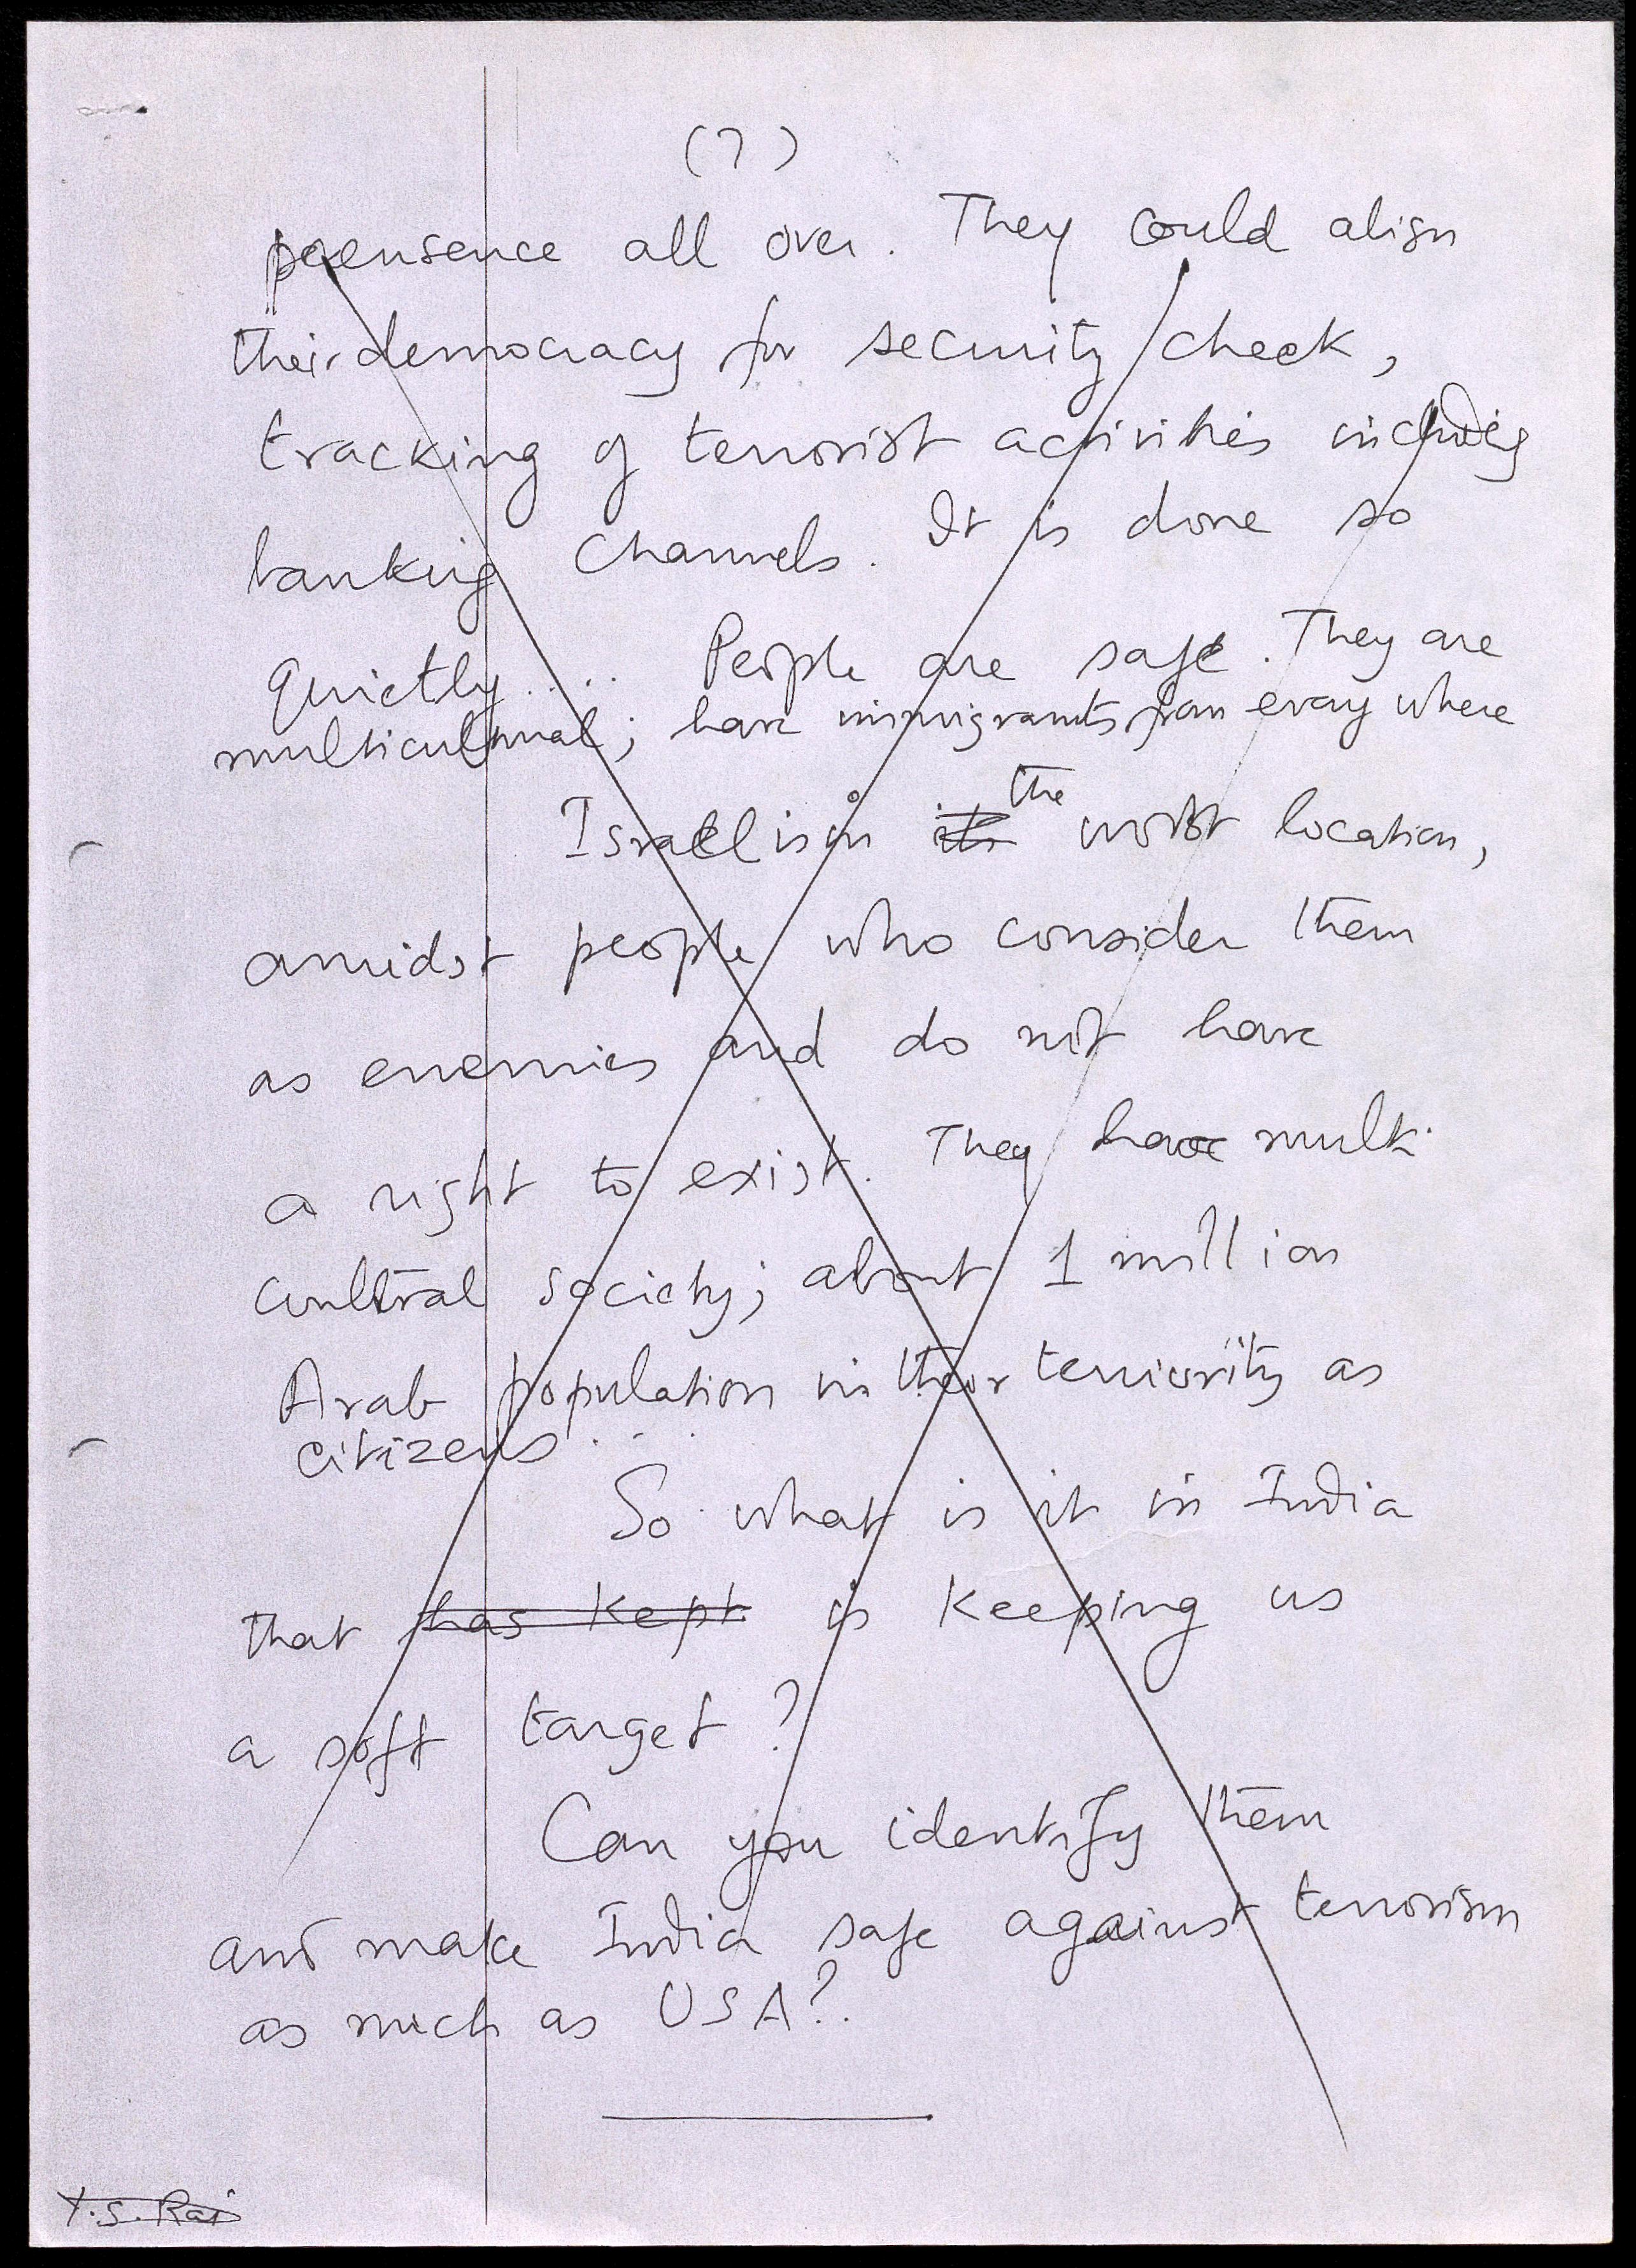 (7)
presence all over. They could align
their democracy for security check,
tracking of terrorist activities including
banking channels. It is done so
quietly..... People are safe. They are
multicultural; have immigrants from every where
Israel is in its the worst location,
amidst people who consider them
as enemies and do not have
a right to exist. They have multi
cultral society; about 1 million
Arab population in their terriority as
citizens....
So what is it in India
that has kept is keeping us
a soft target?
Can you identify them
and make India safe against terrorism
as much as USA?.
Y.S. Rai